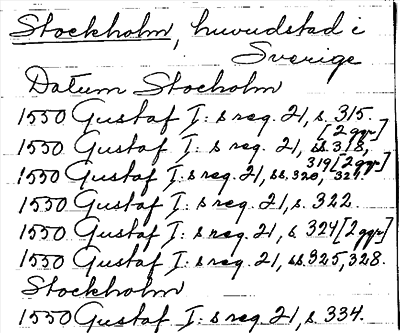 Stockholm, huvudstad i
Sverige
Datum Stocholm
1550 Gustaf I: s reg. 21, s. 315.
[2 ggr]
1550 Gustaf I: s reg. 21, ss. 318,
319 [2 ggr]
1550 Gustaf I: s reg. 21, ss. 320, 321.
1550 Gustaf I: s reg. 21, s. 322.
1550 Gustaf I: s reg. 21, s 324 [2 ggr]
1550 Gustaf I: s reg. 21, ss 325, 328.
Stockholm
1550 Gustaf I: s reg. 21, s. 334.